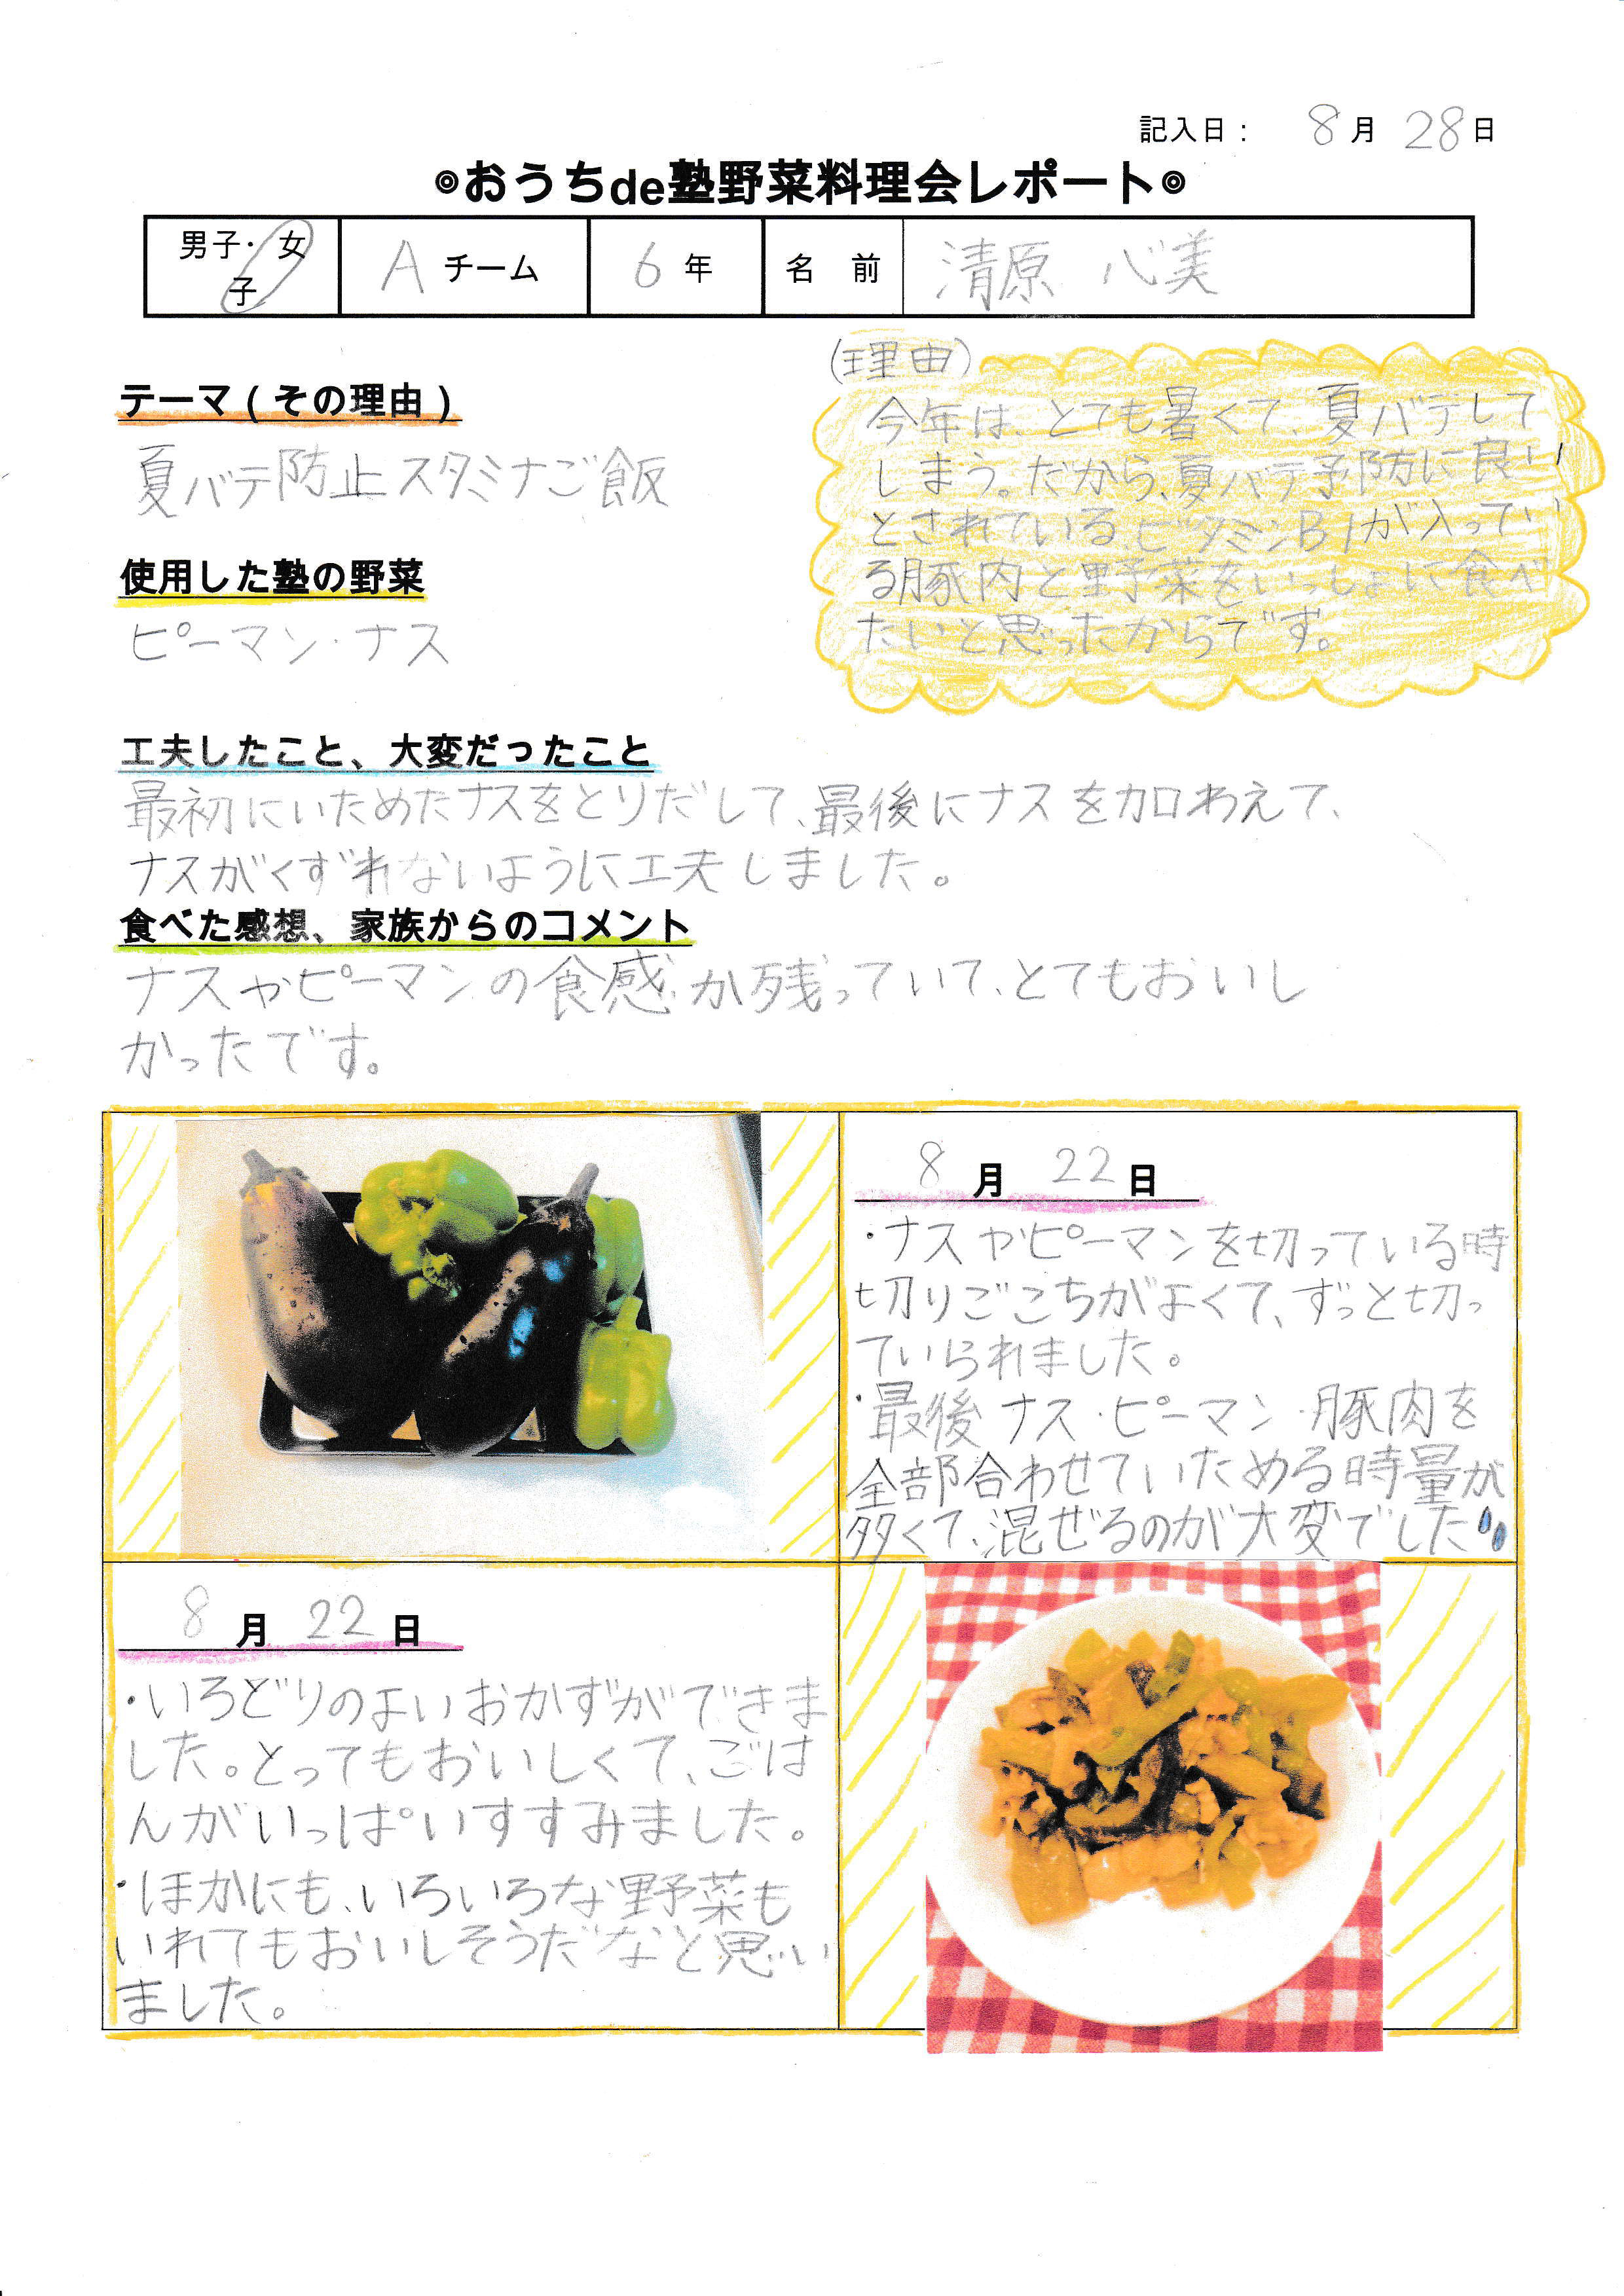 記入日： 8月 28日
◎おうちde塾野菜料理会レポート◎
男子・女子
Aチーム
6年
名 前
清原 心美
テーマ(その理由)
夏バテ防止スタミナご飯
(理由)
今年は、とても暑くて、夏バテして
しまう。だから、夏バテ予防に良い
とされている、ビタミンB1が入ってい
る豚肉と野菜をいっしょに食べ
たいと思ったからです。
使用した塾の野菜
ピーマン・ナス
工夫したこと、大変だったこと
最初にいためたナスをとりだして、最後にナスを加わえて、
ナスがくずれないように工夫しました。
食べた感想、家族からのコメント
ナスやピーマンの食感が残っていて、とてもおいし
かったです。
8月 22日
・ナスやピーマンを切っている時
切りごこちがよくて、ずっと切っ
ていられました。
・最後ナス・ピーマン・豚肉を
全部合わせていためる時量が
多くて、混ぜるのが大変でした
8月 22日
・いろどりのよいおかずができま
した。とってもおいしくて、ごは
んがいっぱいすすみました。
・ほかにも、いろいろな野菜も
いれてもおいしそうだなと思い
ました。